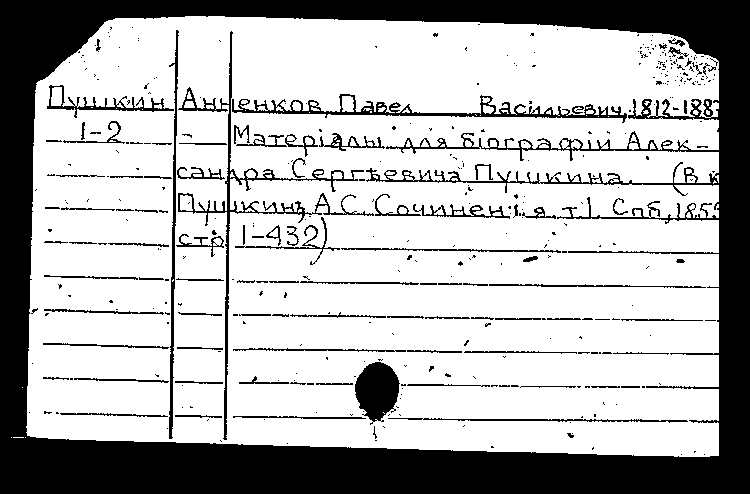 Пушкин Анненков, Павел Васильевич, 1812-1887
1-2 - Матеріалы для біографіи Алек-
сандра Сергѣевича Пушкина. (В к
Пушкинъ, А.С. Сочиненія т I. Спб, 185
стр 1-432)